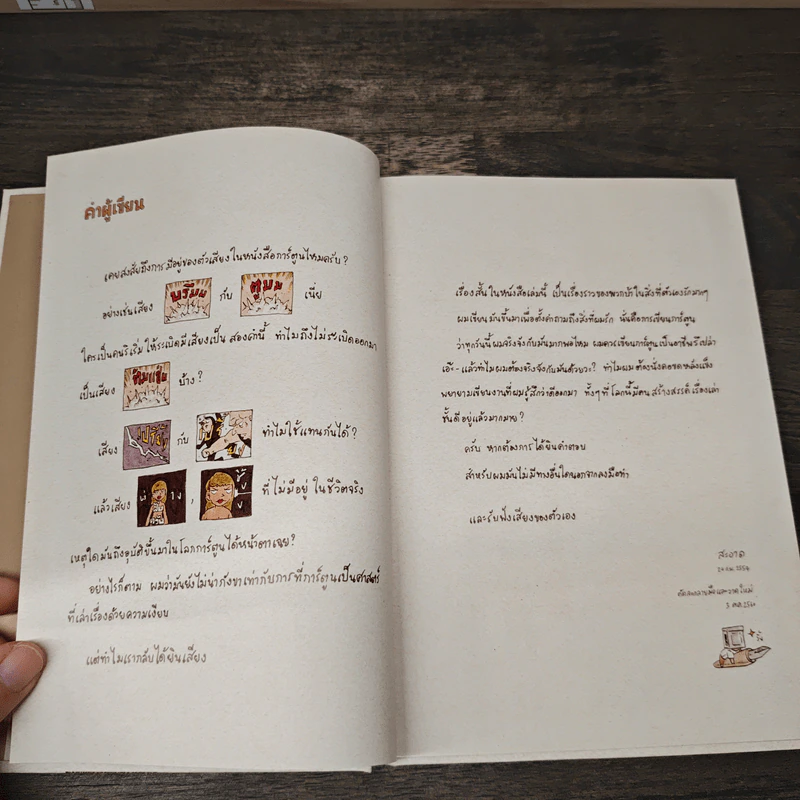 คำผู้เขียน
เคยสงสัยถึงการมีอยู่ของตัวเสียงในหนังสือการ์ตูนไหมครับ?
อย่างเช่นเสียง บรึมม กับ ตูมม เนี่ย
ใครเป็นคนริเริ่มให้ระเบิดมีเสียงเป็นสองคำนี้ ทำไมถึงไม่ระเบิดออกมา
เป็นเสียง บ้าง?
เสียง เปรี้ย กับ ทำไมใช้แทนกันได้?
แล้วเสียง , ที่ไม่มีอยู่ในชีวิตจริง
เหตุใดมันถึงอุบัติขึ้นมาในโลกการ์ตูนได้หน้าตาเฉย?
อย่างไรก็ตาม ผมว่ามันยังไม่น่ากังขาเท่ากับการที่การ์ตูนเป็นศาสตร์
ที่เล่าเรื่องด้วยความเงียบ
แต่ทำไมเรากลับได้ยินเสียง
เรื่องสั้นในหนังสือเล่มนี้ เป็นเรื่องราวของพวกบ้าในสิ่งที่ตัวเองรักมากๆ
ผมเขียนมันขึ้นมาเพื่อตั้งคำถามถึงสิ่งที่ผมรัก นั่นคือการเขียนการ์ตูน
ว่าทุกวันนี้ผมจริงจังกับมันมากพอไหม ผมควรเขียนการ์ตูนเป็นอาชีพรึเปล่า
เอ๊ะ-แล้วทำไมผมต้องจริงจังกับมันด้วยวะ? ทำไมผมต้องนั่งคอขดหลังแข็ง
พยายามเขียนงานที่ผมรู้สึกว่าดีออกมา ทั้งๆ ที่โลกนี้มีคนสร้างสรรค์เรื่องเล่า
ชั้นดีอยู่แล้วมากมาย?
ครับ หากต้องการได้ยินคำตอบ
สำหรับผมมันไม่มีทางอื่นใดนอกจากลงมือทำ
และรับฟังเสียงของตัวเอง
สะอาด
2554